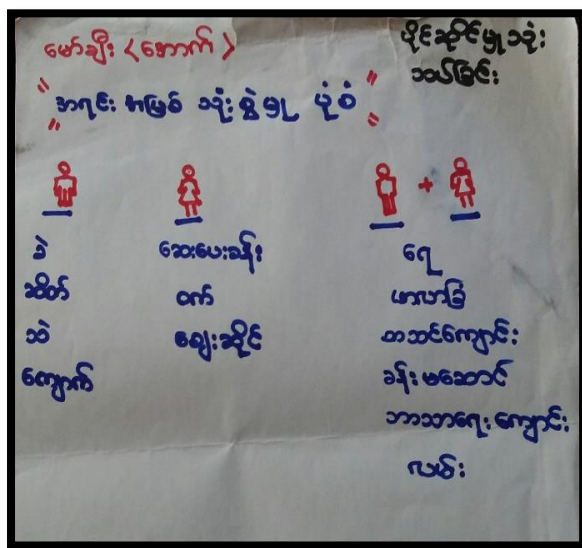 မော်ချီး <အောက်>
ပိုင်ဆိုင်မှု သုံး
သပ်ခြင်း
"အရင်း အမြစ် သုံးစွဲမှု ပုံစံ"
+
ခဲ
ဆိတ်
သဲ
ကျောက်
ဆေးပေးခန်း
ဝက်
ဈေးဆိုင်
ရေ
ဟာလာခြံ
စာသင်ကျောင်း
ခန်းမဆောင်
ဘာသာရေးကျောင်း
လမ်း